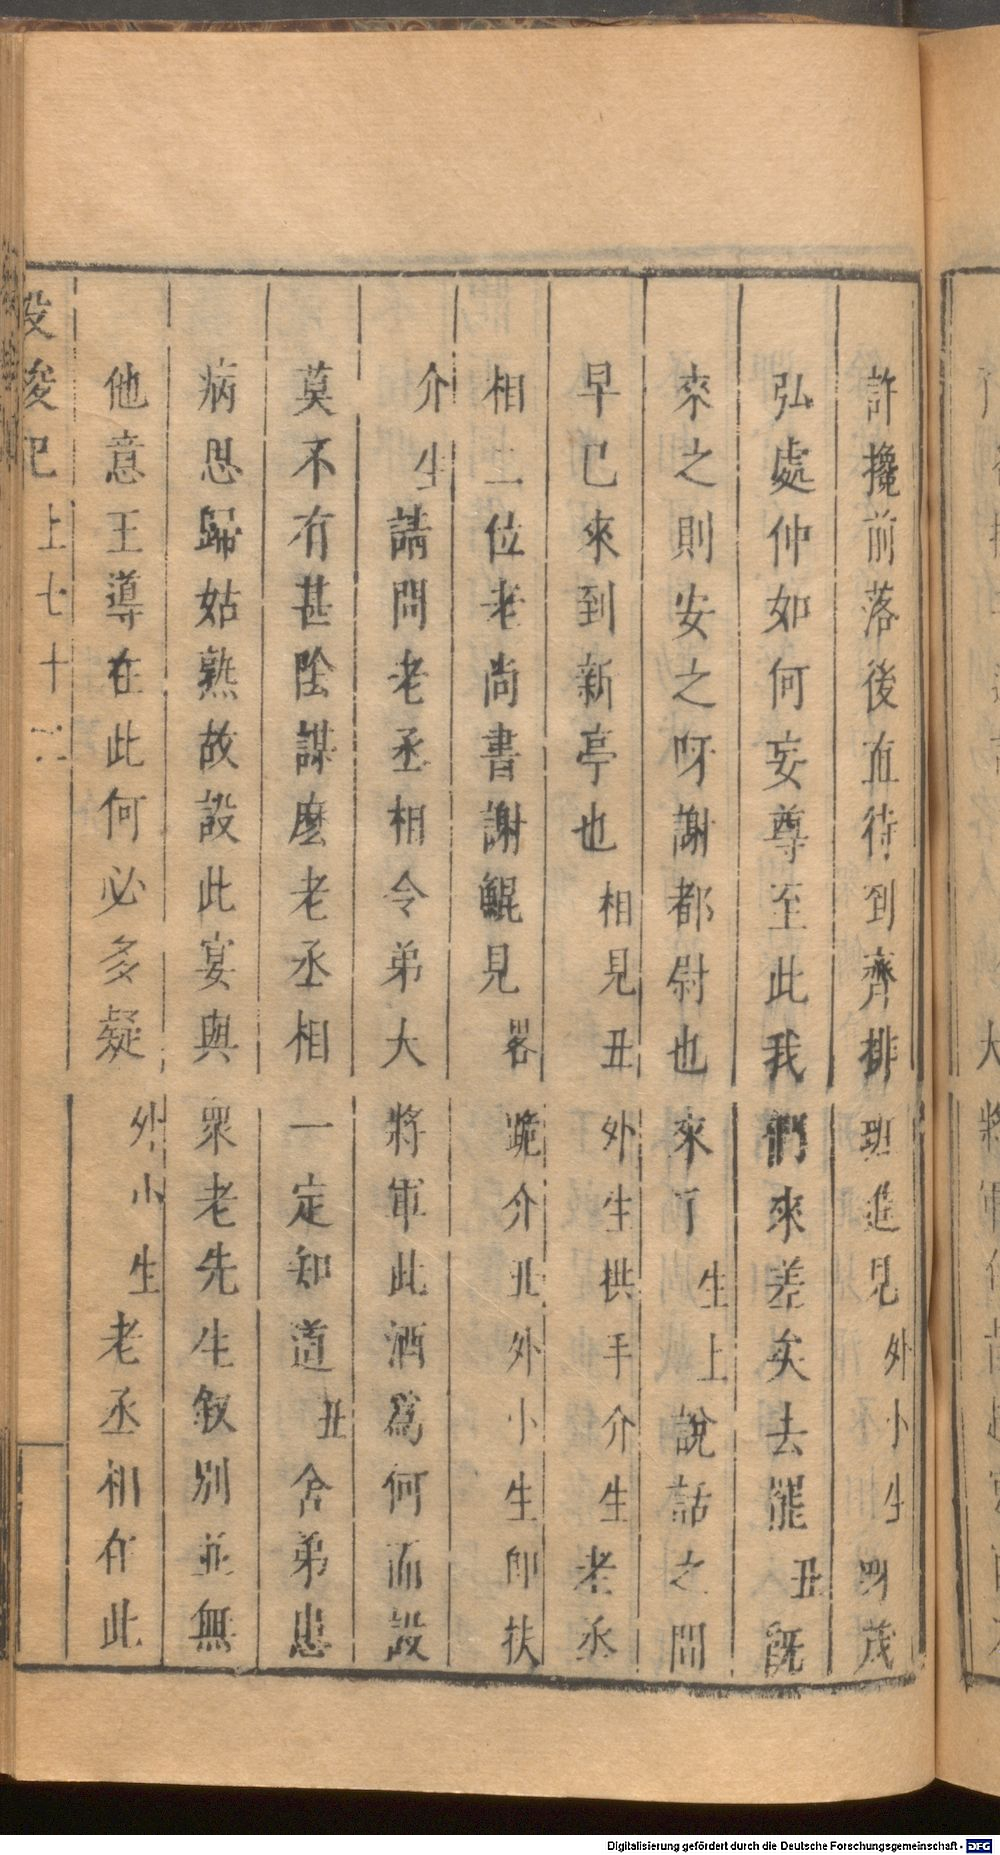 許攙前落後直待到齊排班進見外小生叫茂
弘處仲如何妄尊至此我們來差矣去罷丑既
來之則安之呀謝都尉也來了生上說話之間
早已來到新亭也相見丑外生拱手介生老丞
相二位老尚書謝鯤見畧跪介丑外小生即扶
介生請問老丞相令弟大將軍此酒爲何而設
莫不有甚陰謀麼老丞相一定知道丑舍弟患
病思歸姑熟故設此宴與衆老先生叙別並無
他意王導在此何必多疑外小生老丞相在此
投梭記 上七十
Digitalisierung gefördert durch die Deutsche Forschungsgemeinschaft - DFG